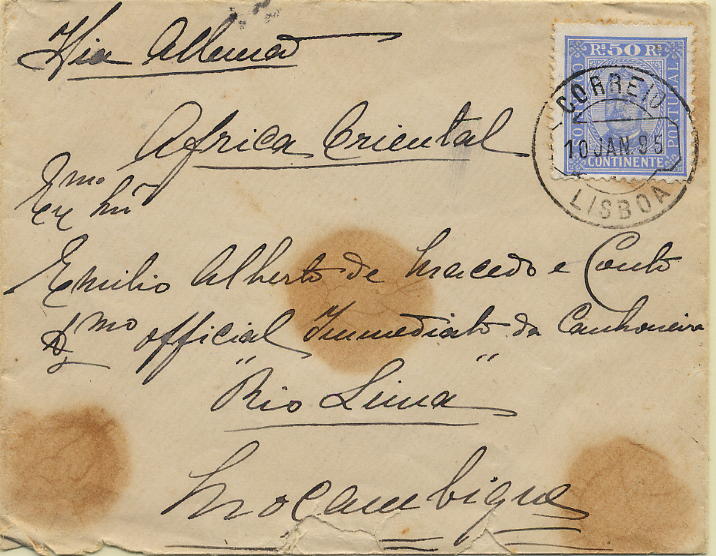 Via Allemã
R.s 50 R.s
PORTUGAL
CONTINENTE
CORREIO
10 JAN. 95
LISBOA
Africa Oriental
Exmo Snr
Emilio Alberto de Macedo e Couto
Dmo official Immediato da Canhoneira
"Rio Lima"
Moçambique